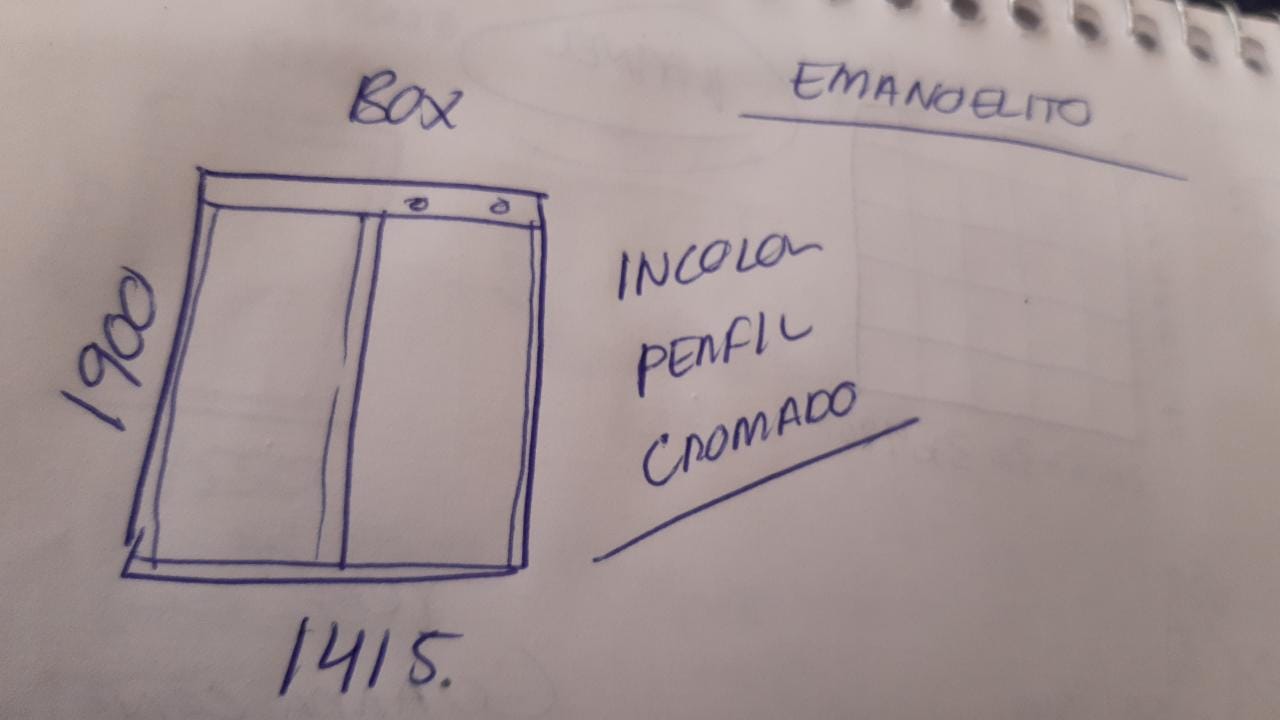 BOX
EMANOELITO
1900
INCOLOR
PERFIL
CROMADO
1415.